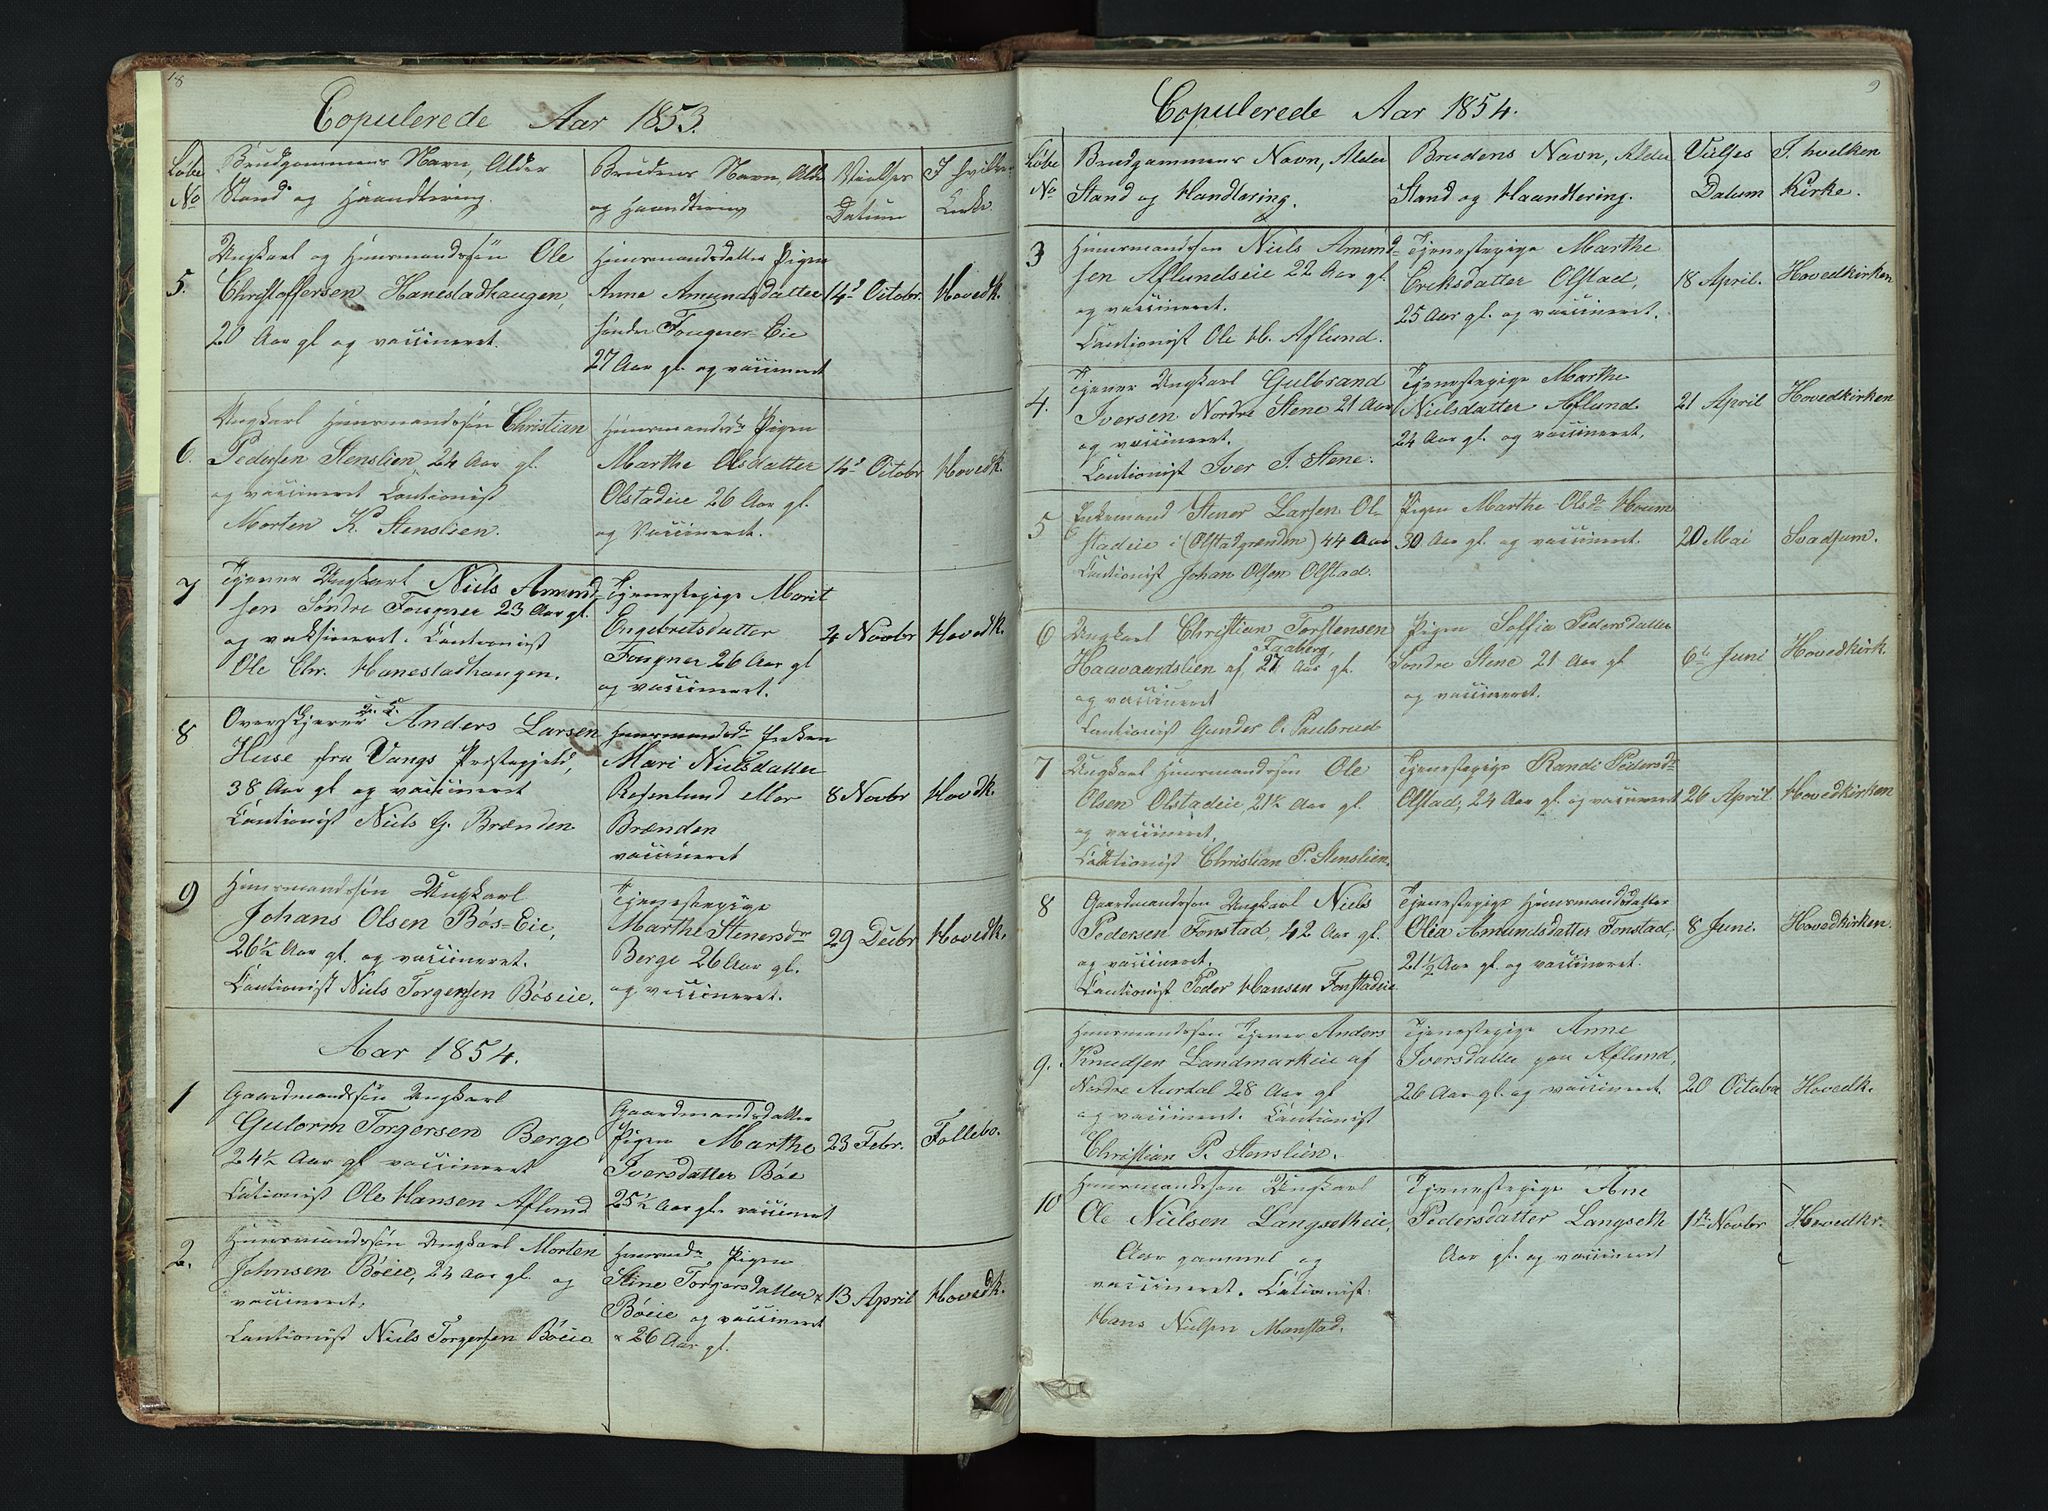 18
Copulerede Aar 1853.
Løbe No
Brudgommens Navn, Alder
Stand og Haandtering.
Brudens Navn, Alde
og Haandtering
Vielses Datum
I hvilken Kirke.
5.
Ungkarl og Huusmandssøn Ole
Christoffersen Hanestadhaugen,
20 Aar gl og vaccineret.
Huusmandsdatter Pigen
Anne Amundsdatter
søndre Fougner-Eie
27 Aar gl. og vaccineret
14de Octobr.
Hovedk.
6.
Ungkarl Huusmandssøn Christian
Pedersen Stenslien, 24 Aar gl.
og vaccineret Cautionist
Morten K. Stenslien.
Huusmandsdr Pigen
Marthe Olsdatter
Olstadeie 26 Aar gl.
og Vaccineret.
14de Octobr
Hovedk.
7
Tjener Ungkarl Niels Amund-
sen Søndre Fougner 23 Aar gl.
og vaksineret. Cautionist
Ole Chr. Hanestadhaugen.
Tjenestepige Marit
Engebretsdatter
Fougner 26 Aar gl
og vaccineret.
4 Novbr
Hovedk.
8
Overskjærer Anders Larsen
Huse fra Vangs Prestegjeld,
38 Aar gl og vaccineret
Cautionist Niels G. Brænden
Huusmandsdr Enken
Mari Nielsdatter
Rosenlund eller
Brænden
vaccineret
8 Novbr
Hovdk.
9
Huusmandssøn Ungkarl
Johans Olsen Bøs-Eie,
26½ Aar gl. og vaccineret.
Cautionist Niels Torgersen Bøseie.
Tjenestepige
Marthe Stenersdr
Berge 26 Aar gl.
og vaccineret.
29 Decbr
Hovedk.
Aar 1854.
1
Gaardmandssøn Ungkarl
Gutorm Torgersen Berge
24½ Aar gl vaccineret
Cautionist Ole Hansen Aflund
Gaardmandsdatter
Pigen Marthe
Iversdatter Bøe
25½ Aar gl. vaccineret
23 Febr.
Follebo.
2.
Huusmandssøn Ungkarl Morten
Johnsen Bøeie, 24 Aar gl. og
vaccineret.
Cautionist Niels Torgersen Bøeie
Huusmdr Pigen
Stine Torgersdatter
Bøeie og vaccineret
26 Aar gl.
13 April
Hovedk.
9
Copulerede Aar 1854.
Løbe No
Brudgommens Navn, Alder
Stand og Handtering.
Brudens Navn, Alder
Stand og Haandtering.
Vielses Datum
I hvilken Kirke.
3
Huusmandssøn Niels Amund-
sen Aflundseie 22 Aar gl.
og vaccineret.
Cautionist Ole H. Aflund.
Tjenestepige Marthe
Eriksdatter Olstad,
25 Aar gl. og vaccineret.
18 April.
Hovedkirken
4.
Tjener Ungkarl Gulbrand
Iversen Nordre Stene 21 Aar
og vaccineret.
Cautionist Iver J. Stene.
Tjenestepige Marthe
Nielsdatter Aflund.
24 Aar gl. og vaccineret,
21 April
Hovedkirken
5
Enkemand Stener Larsen Ol-
stadeie i (Olstadgrænden) 44 Aar
Cautionist Johan Olsen Olstad.
Pigen Marthe Olsdr Hoem
30 Aar gl. og vaccineret.
20 Mai
Svadsum.
6
Ungkarl Christian Torstensen
Haavaardslien af Faaberg, 27 Aar gl.
og vaccineret
Cautionist Gunder O. Paulsrud
Pigen Soffia Pedersdatter
Søndre Stene 21 Aar gl
og vaccineret.
6te Juni
Hovedkirk.
7
Ungkarl Huusmandssøn Ole
Olsen Olstadeie, 21½ Aar gl.
og vaccineret,
Cautionist Christian P. Stenslien.
Tjenestepige Randi Pedersdr
Olstad, 24 Aar gl. og vaccineret
26 April
Hovedkirken
8
Gaardmandssøn Ungkarl Niels
Pedersen Fonstad, 42 Aar gl.
og vaccineret.
Cautionist Peder Hansen Fonstadeie
Tjenestepige Huusmandsdatter
Olia Amundsdatter Fonstad,
21½ Aar gl. og vaccineret.
8 Juni.
Hovedkirken.
9.
Huusmandssøn Tjener Anders
Knudsen Landmarkeie af
Nordre Aurdal 28 Aar gl
og vaccineret. Cautionist
Christian P. Stenslien.
Tjenestepige Anne
Iversdatter paa Aflund,
26 Aar gl. og vaccineret.
20 Octobr
Hovedk.
10
Huusmandssøn Ungkarl
Ole Nielsen Langsetheie,
Aar gammel og
vaccineret. Cautionist
Hans Nielsen Manstad.
Tjenestepige Ane
Pedersdatter Langseth
Aar gl. og vaccineret
1ste Novbr
Hovedkr.